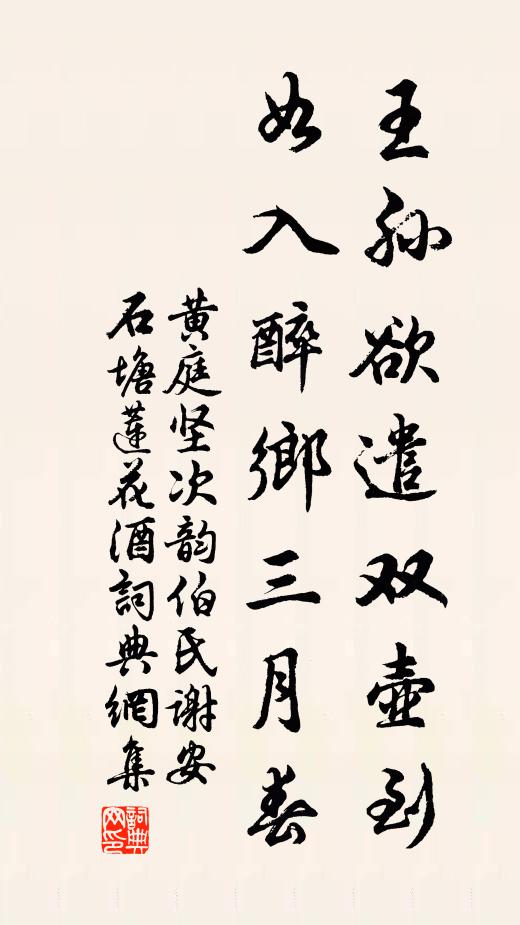 王孙欲遣双壶到
如入醉鄉三月春
黄庭坚次韵伯氏谢安
石塘蓮花酒詞典網集
詞典
网印